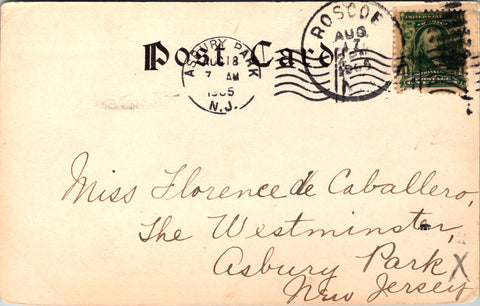 Post Card
ASBURY PARK
AUG 18
7 AM
1905
N.J.
ROSCOE
AUG
17
Miss Florence de Caballero,
The Westminster,
Asbury Park
New Jersey
X